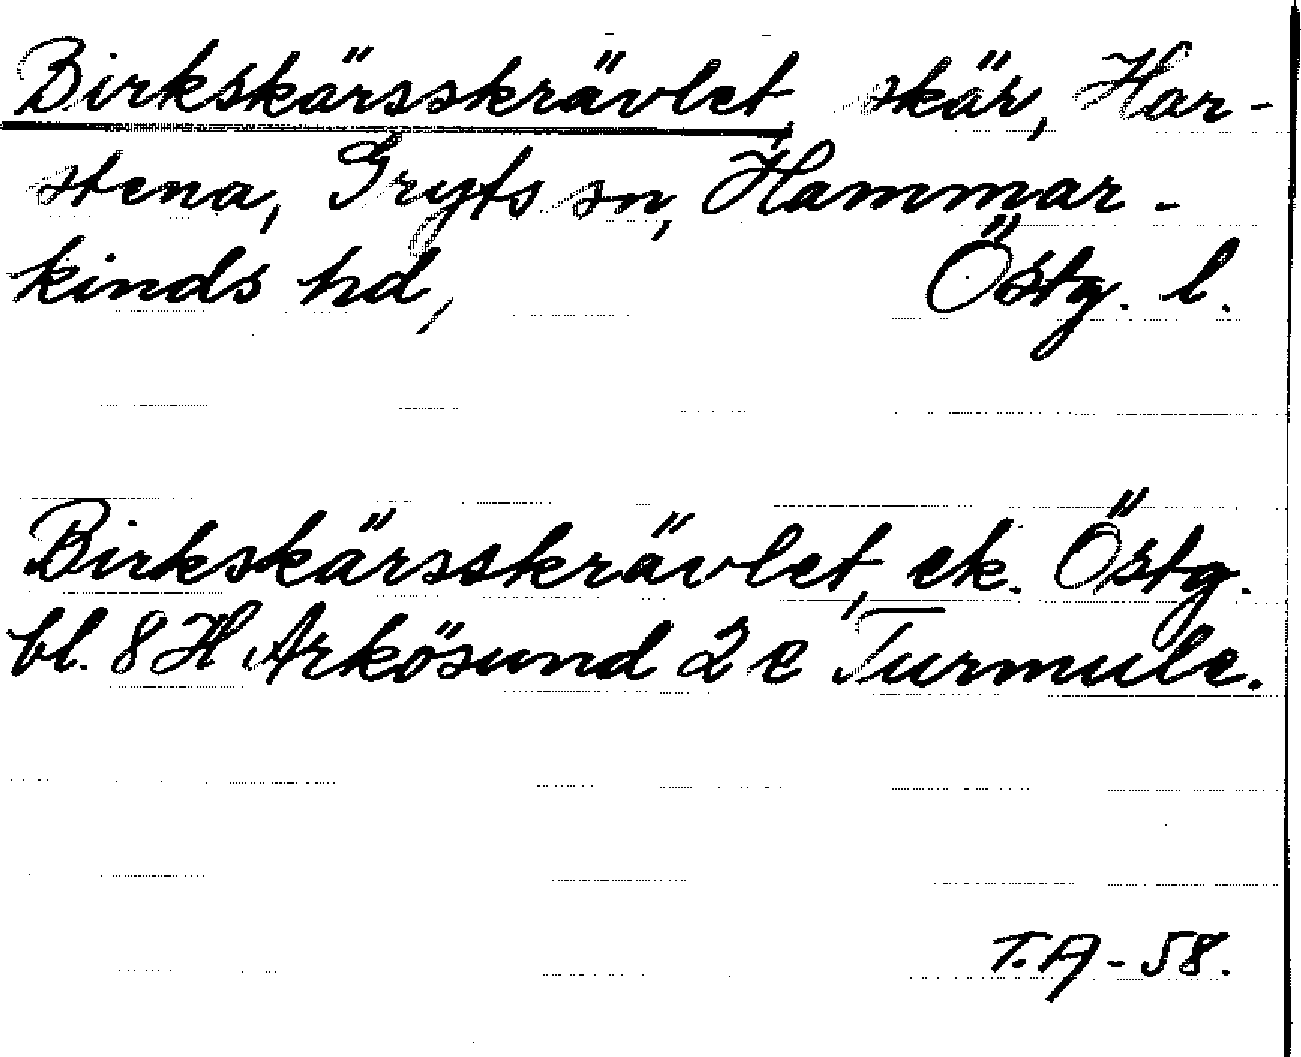 Birkskärsskrävlet, skär, Har-
stena, Gryts sn, Hammar-
kinds hd, Östg. l.
Birkskärsskrävlet, ek. Östg.
bl. 8 H Arkösund 2 c Turmule.
T.A-58.